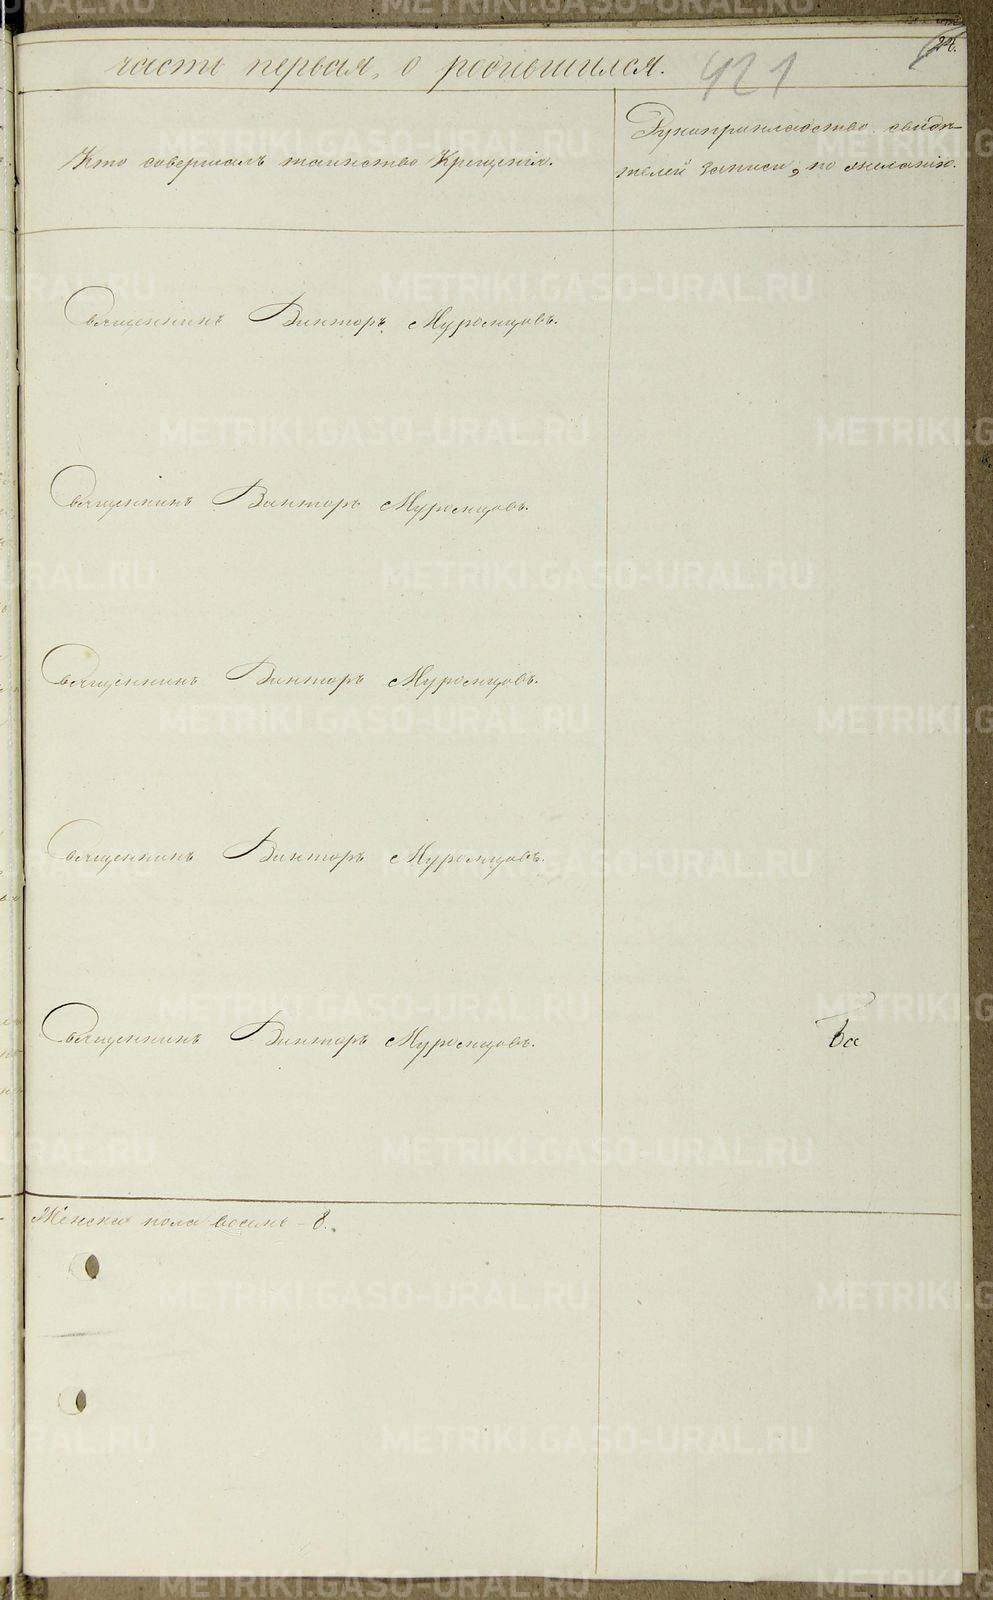 часть первая, о родившихся. 421
Кто совершалъ таинство Крещенія.
Рукоприкладство свидѣ-
телей записи, по желанію.
Священникъ Викторъ Муромцовъ.
Священникъ Викторъ Муромцовъ.
Священникъ Викторъ Муромцовъ.
Священникъ Викторъ Муромцовъ.
Священникъ Викторъ Муромцовъ.
Женска пола восемь - 8.
METRIKI.GASO-URAL.RU